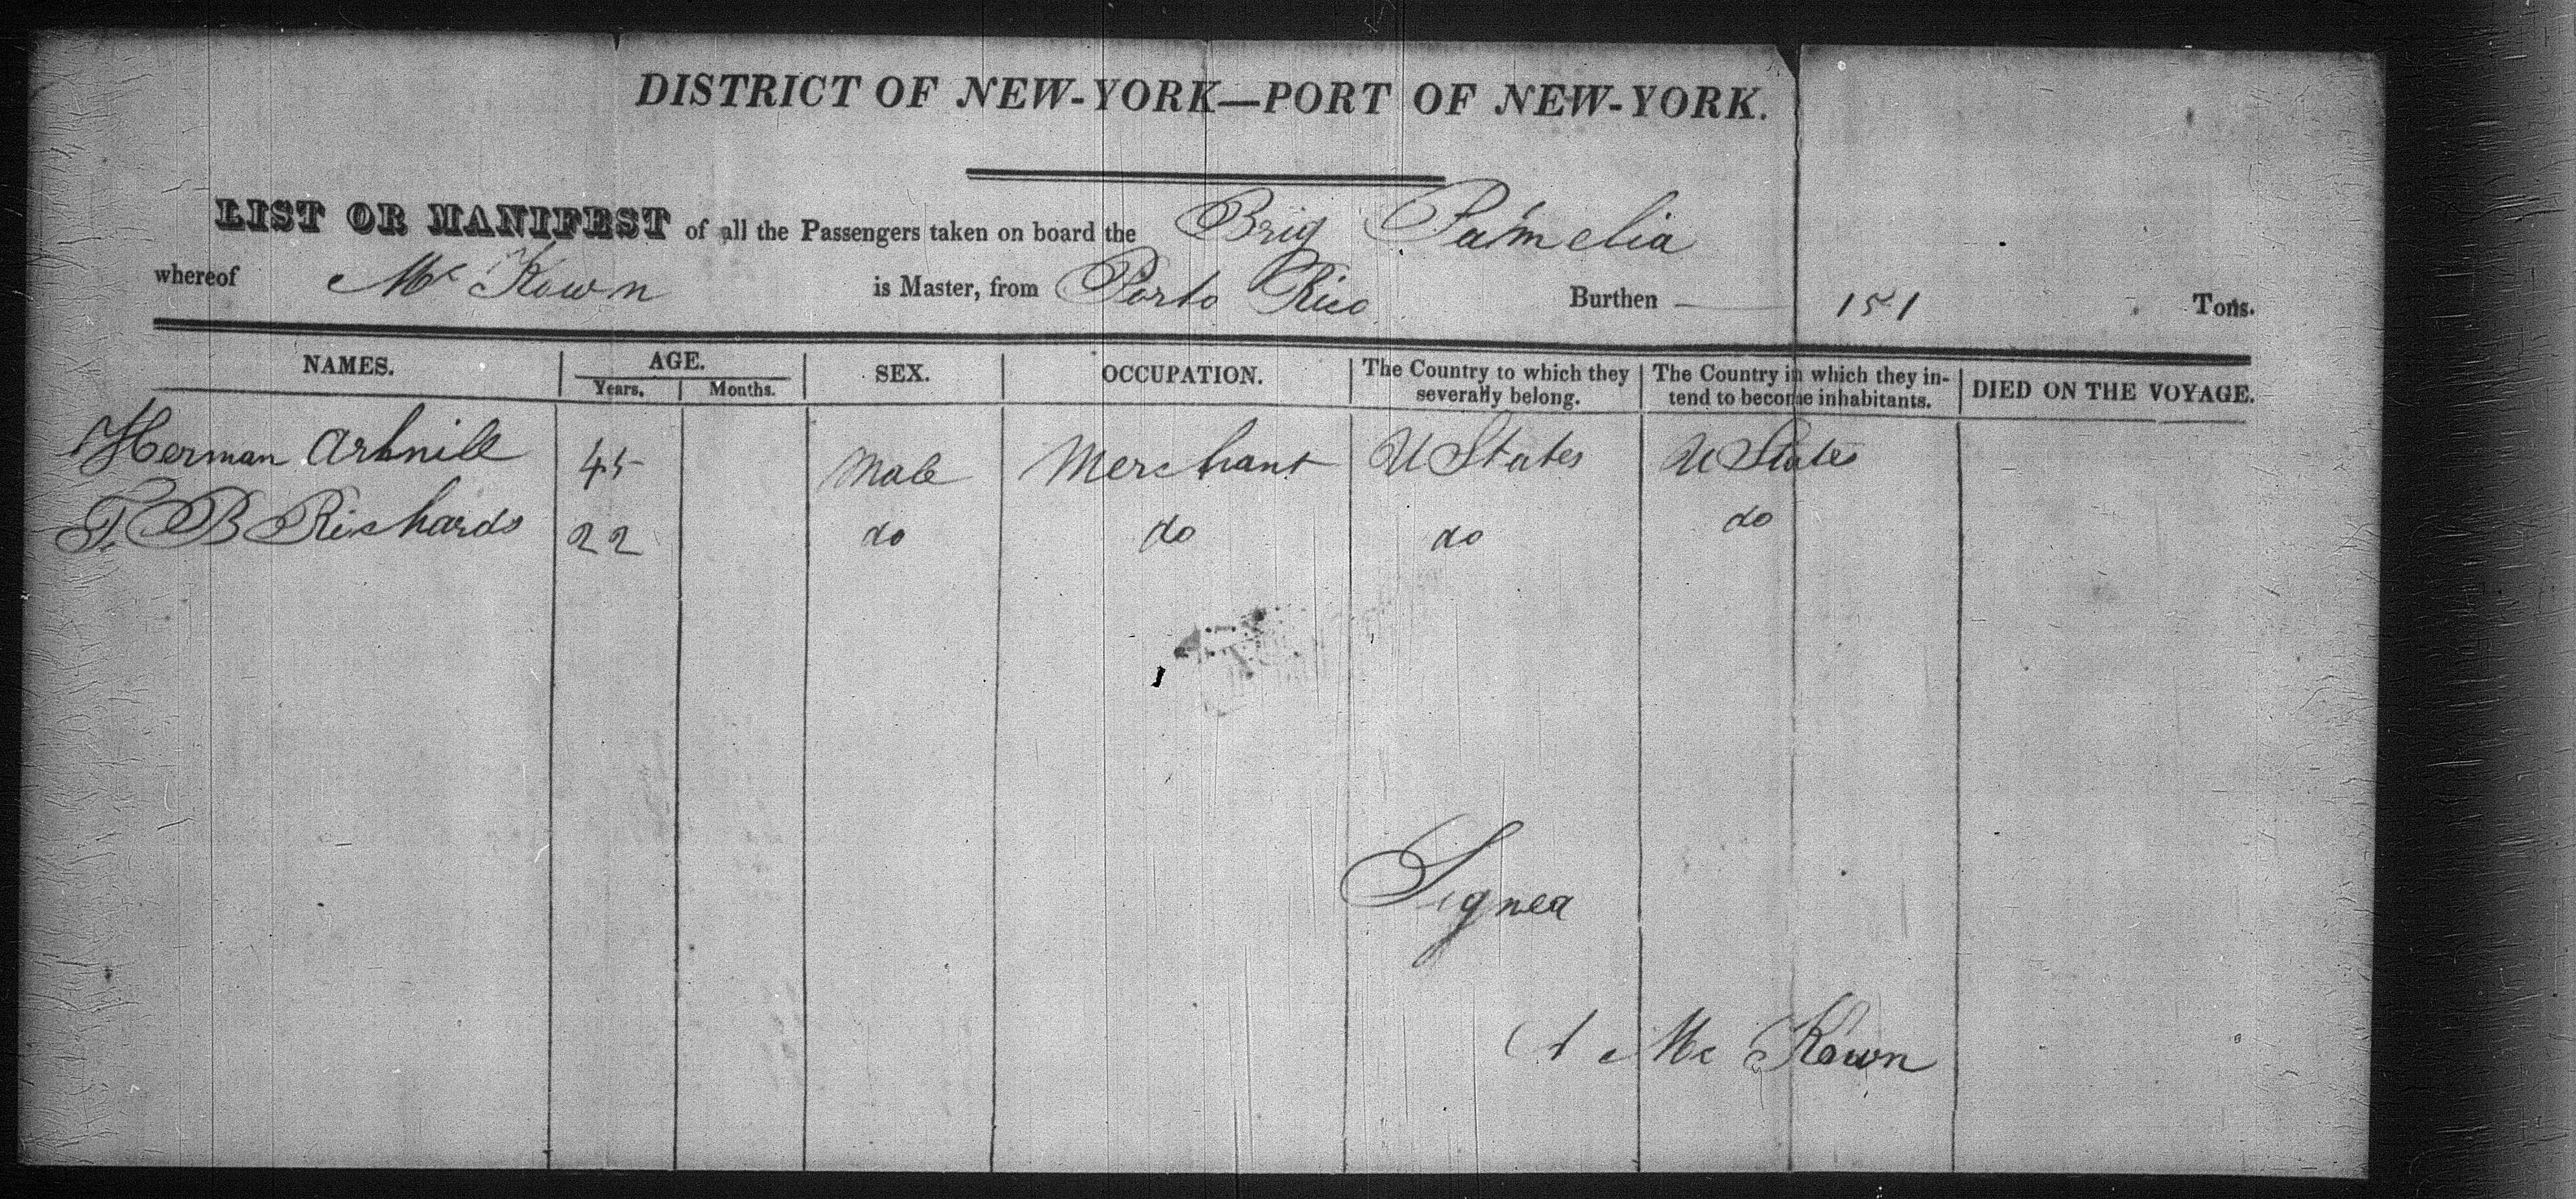 DISTRICT OF NEW-YORK—PORT OF NEW-YORK.
LIST OR MANIFEST of all the Passengers taken on board the Brig Pamelia
whereof Mc Kown is Master, from Porto Rico Burthen — 151 Tons.
NAMES. AGE. Years. Months. SEX. OCCUPATION. The Country to which they severally belong. The Country in which they intend to become inhabitants. DIED ON THE VOYAGE.
Herman 45 Male Merchant U States U States
B Richards 22 do do do do
Signed
Mc Kown